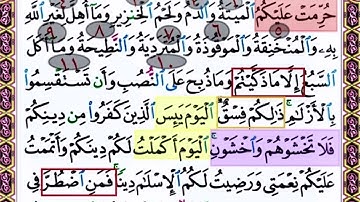 حُرِّمَتْ عَلَيْكُمُ ٱلْمَيْتَةُ وَٱلدَّمُ وَلَحْمُ ٱلْخِنزِيرِ وَمَآ أُهِلَّ لِغَيْرِ ٱللَّهِ
٥ ٦ ٧ ٨ ٩
بِهِۦ وَٱلْمُنْخَنِقَةُ وَٱلْمَوْقُوذَةُ وَٱلْمُتَرَدِّيَةُ وَٱلنَّطِيحَةُ وَمَآ أَكَلَ
١٠ ١١
ٱلسَّبُعُ إِلَّا مَا ذَكَّيْتُمْ وَمَا ذُبِحَ عَلَى ٱلنُّصُبِ وَأَن تَسْتَقْسِمُوا۟
بِٱلْأَزْلَٰمِ ۚ ذَٰلِكُمْ فِسْقٌ ۗ ٱلْيَوْمَ يَئِسَ ٱلَّذِينَ كَفَرُوا۟ مِن دِينِكُمْ
فَلَا تَخْشَوْهُمْ وَٱخْشَوْنِ ۚ ٱلْيَوْمَ أَكْمَلْتُ لَكُمْ دِينَكُمْ وَأَتْمَمْتُ
عَلَيْكُمْ نِعْمَتِى وَرَضِيتُ لَكُمُ ٱلْإِسْلَٰمَ دِينًا ۚ فَمَنِ ٱضْطُرَّ فِى